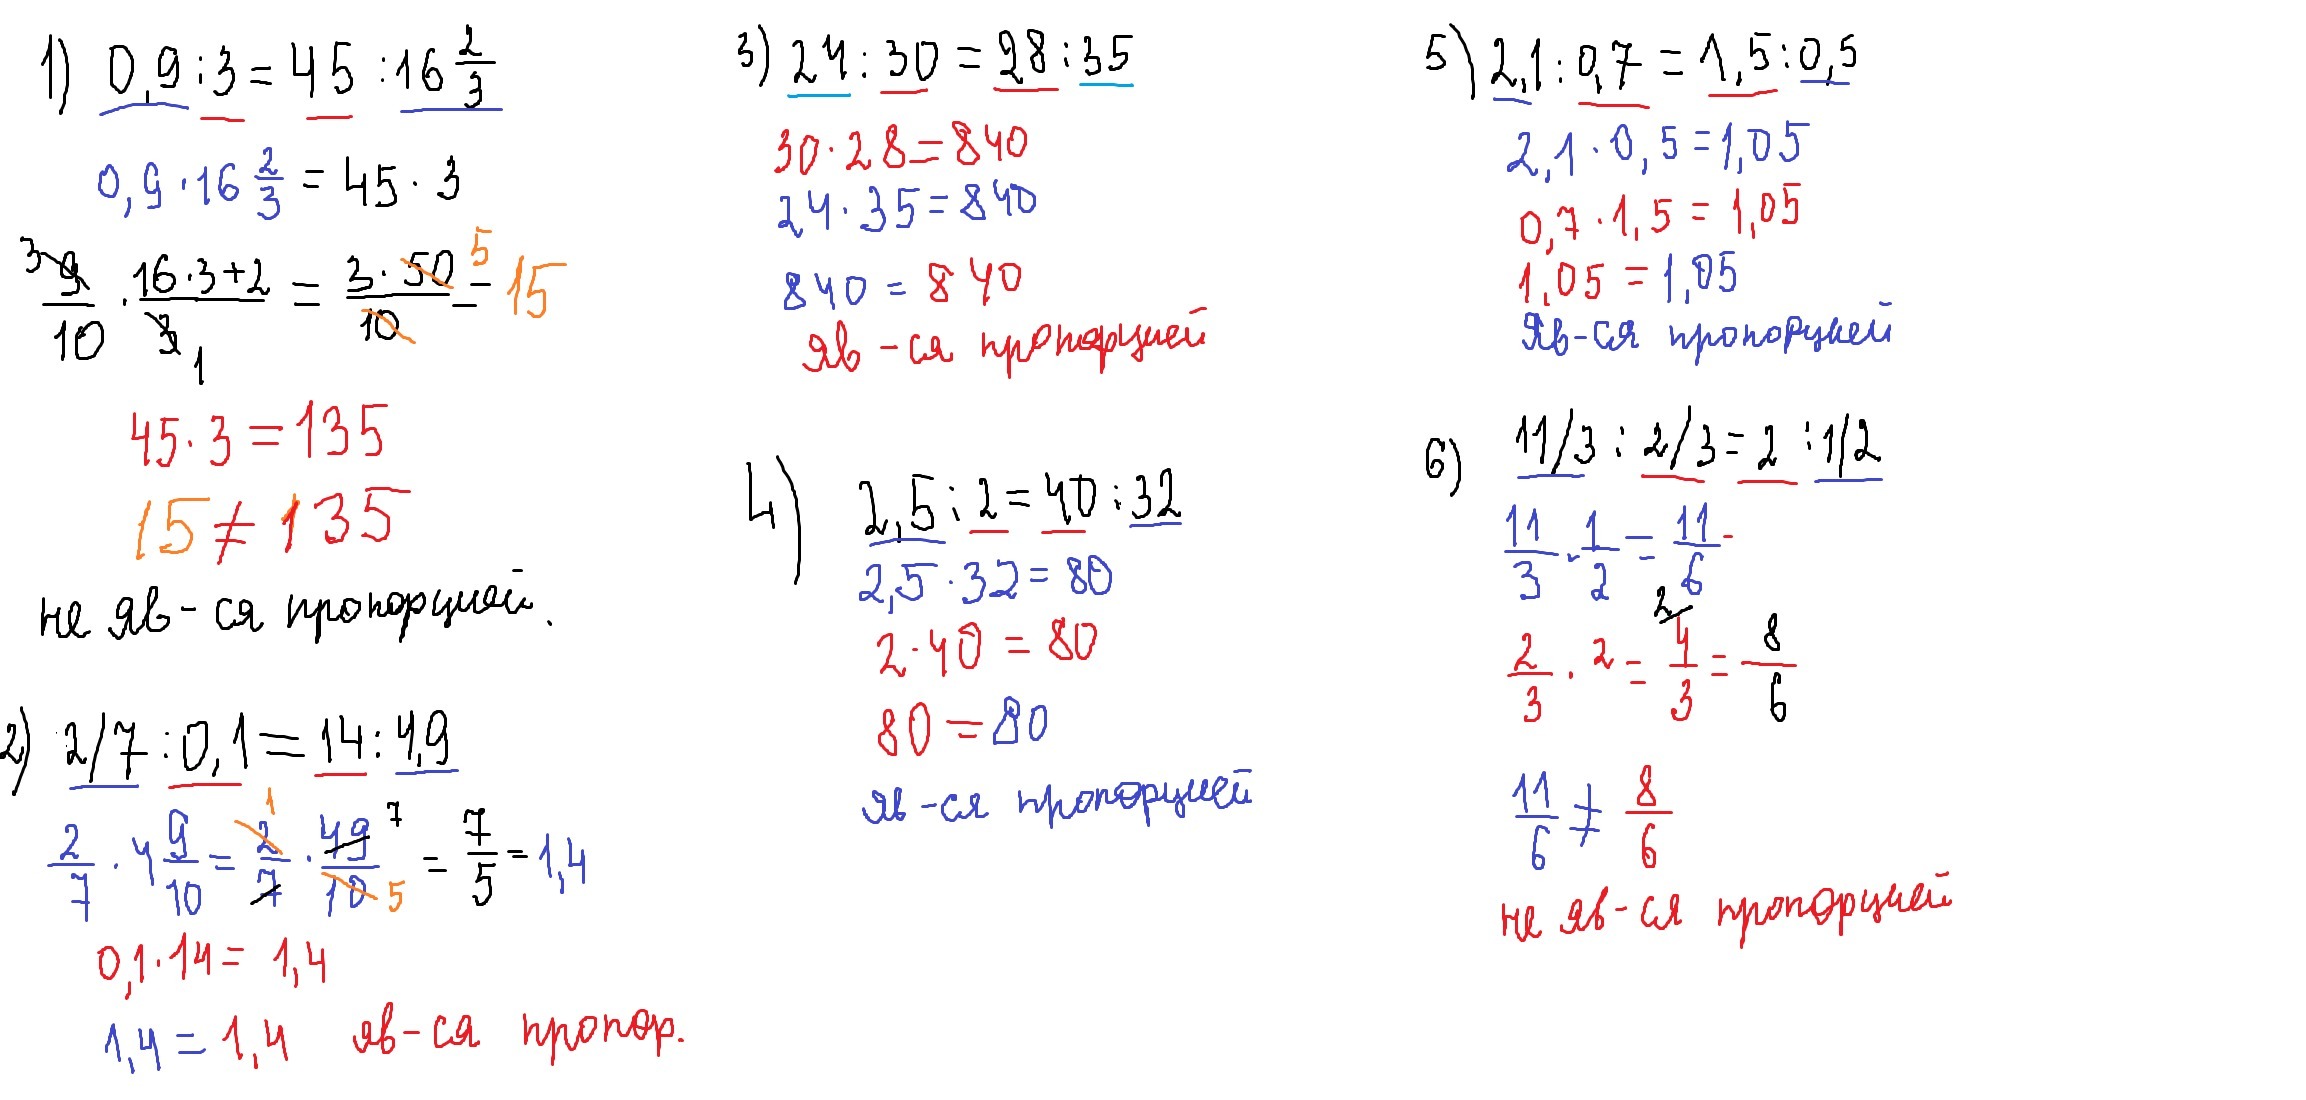 1) 0,9 : 3 = 45 : 16 2/3
0,9 · 16 2/3 = 45 · 3
3 9/10 · 16·3+2/3 1 = 3·50/10 5 = 15
45 · 3 = 135
15 ≠ 135
не яв-ся пропорцией.
2) 2/7 : 0,1 = 14 : 4,9
2/7 · 4 9/10 = 2/7 1 · 49/10 7 5 = 7/5 = 1,4
0,1 · 14 = 1,4
1,4 = 1,4 яв-ся пропор.
3) 24 : 30 = 28 : 35
30 · 28 = 840
24 · 35 = 840
840 = 840
яв-ся пропорцией
4) 2,5 : 2 = 40 : 32
2,5 · 32 = 80
2 · 40 = 80
80 = 80
яв-ся пропорцией
5) 2,1 : 0,7 = 1,5 : 0,5
2,1 · 0,5 = 1,05
0,7 · 1,5 = 1,05
1,05 = 1,05
яв-ся пропорцией
6) 11/3 : 2/3 = 2 : 1/2
11/3 · 1/2 = 11/6
2/3 · 2 = 2/ 4/3 = 8/6
11/6 ≠ 8/6
не яв-ся пропорцией